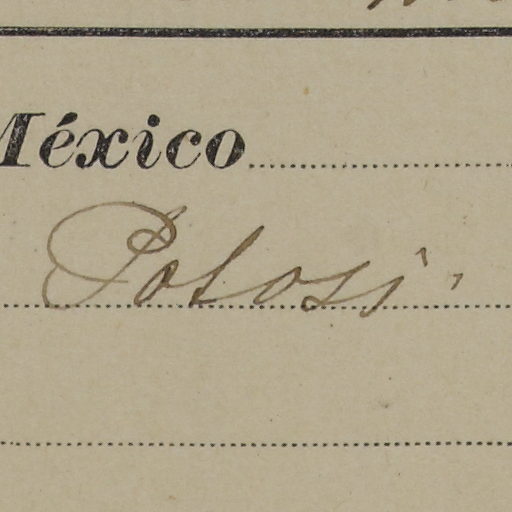 México
Potosí